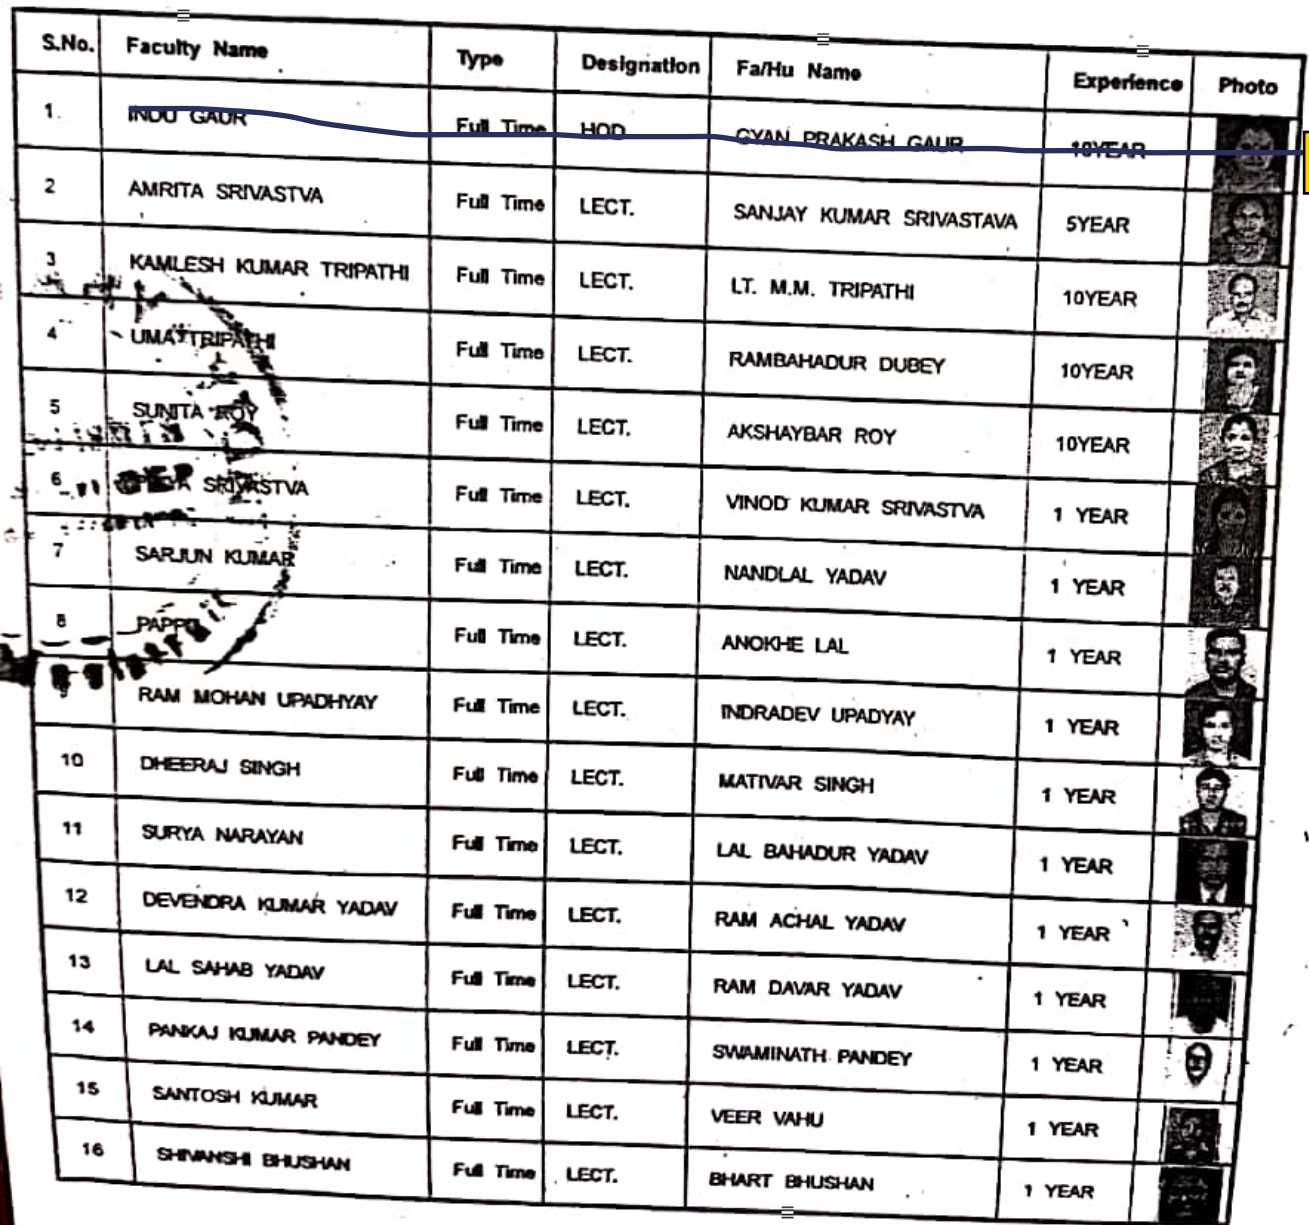 S.No. Faculty Name Type Designation Fa/Hu Name Experience Photo
1. INDU GAUR Full Time HOD GYAN PRAKASH GAUR 10YEAR
2 AMRITA SRIVASTVA Full Time LECT. SANJAY KUMAR SRIVASTAVA 5YEAR
3 KAMLESH KUMAR TRIPATHI Full Time LECT. LT. M.M. TRIPATHI 10YEAR
4 UMA TRIPATHI Full Time LECT. RAMBAHADUR DUBEY 10YEAR
5 SUNITA ROY Full Time LECT. AKSHAYBAR ROY 10YEAR
6 SRIVASTVA Full Time LECT. VINOD KUMAR SRIVASTVA 1 YEAR
7 SARJUN KUMAR Full Time LECT. NANDLAL YADAV 1 YEAR
8 PAPPU Full Time LECT. ANOKHE LAL 1 YEAR
9 RAM MOHAN UPADHYAY Full Time LECT. INDRADEV UPADYAY 1 YEAR
10 DHEERAJ SINGH Full Time LECT. MATIVAR SINGH 1 YEAR
11 SURYA NARAYAN Full Time LECT. LAL BAHADUR YADAV 1 YEAR
12 DEVENDRA KUMAR YADAV Full Time LECT. RAM ACHAL YADAV 1 YEAR
13 LAL SAHAB YADAV Full Time LECT. RAM DAVAR YADAV 1 YEAR
14 PANKAJ KUMAR PANDEY Full Time LECT. SWAMINATH PANDEY 1 YEAR
15 SANTOSH KUMAR Full Time LECT. VEER VAHU 1 YEAR
16 SHIVANSHI BHUSHAN Full Time LECT. BHART BHUSHAN 1 YEAR